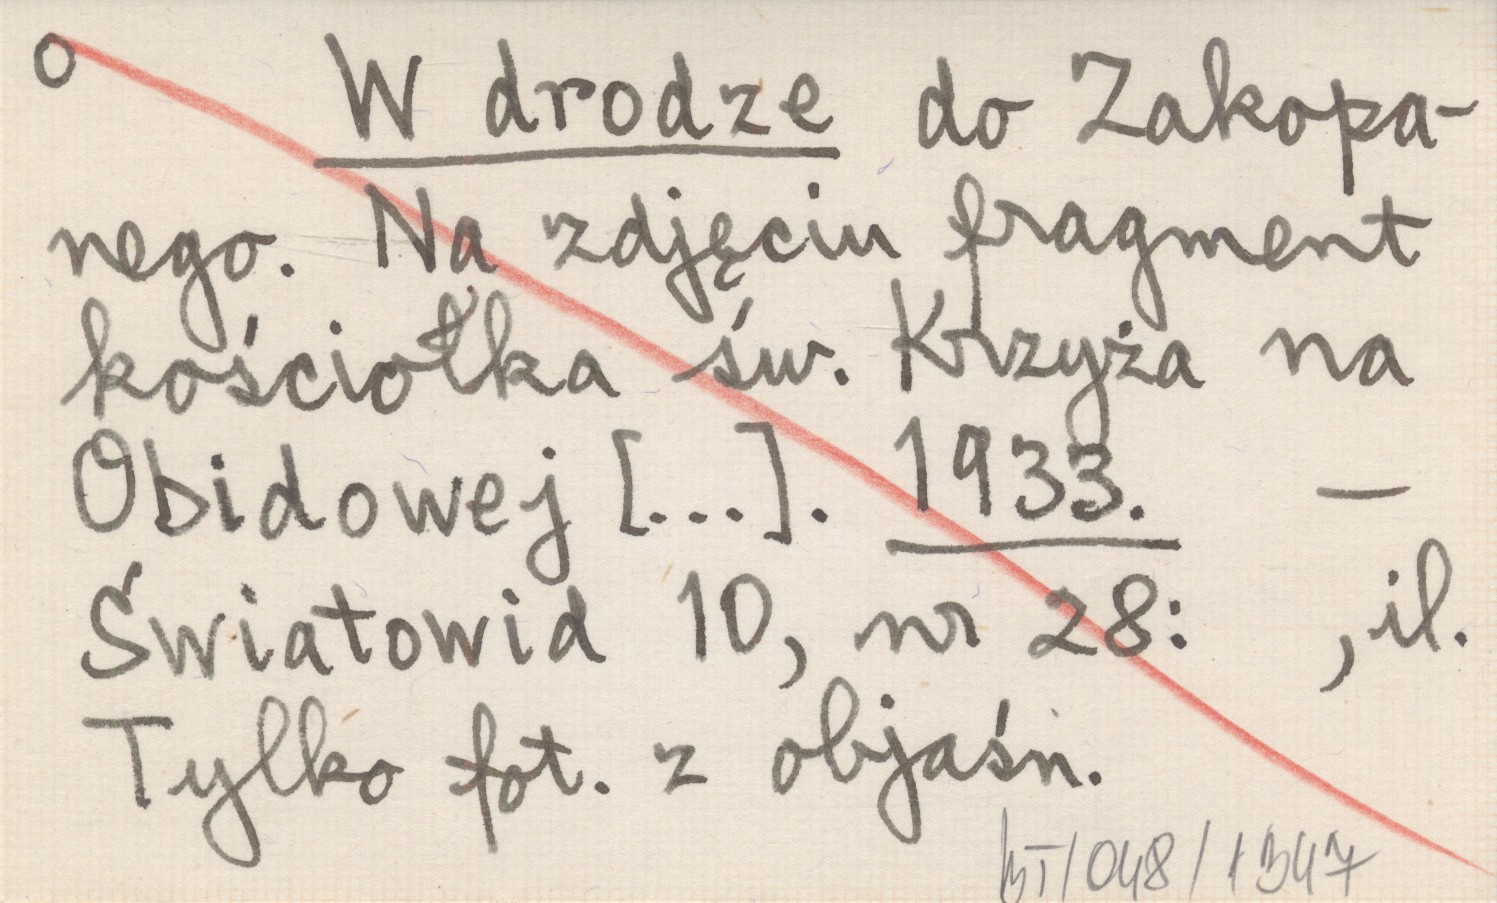 o W drodze do Zakopa-
nego. Na zdjęciu fragment
kościołka św. Krzyża na
Obidowej [...]. 1933. —
Światowid 10, nr 28: , il.
Tylko fot. z objaśn.
BT/048/1347